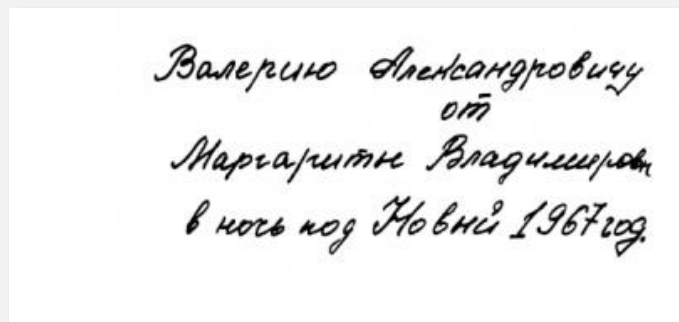 Валерию Александровичу
от
Маргариты Владимировн
в ночь под Новый 1967 год.